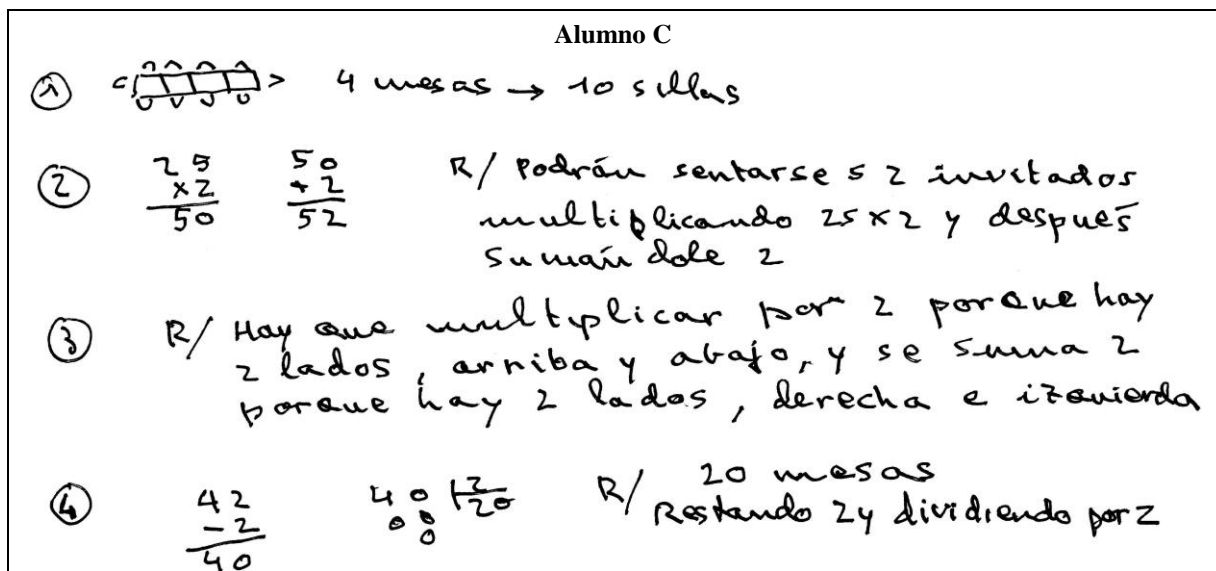 Alumno C
① 4 mesas → 10 sillas
② 25 50 R/ Podrán sentarse 52 invitados
x2 +2 multiplicando 25 x 2 y después
50 52 sumándole 2
③ R/ Hay que multiplicar por 2 porque hay
2 lados, arriba y abajo, y se suma 2
porque hay 2 lados, derecha e izquierda
④ 42 40 2 R/ 20 mesas
-2 00 20 Restando 2 y dividiendo por 2
40 0